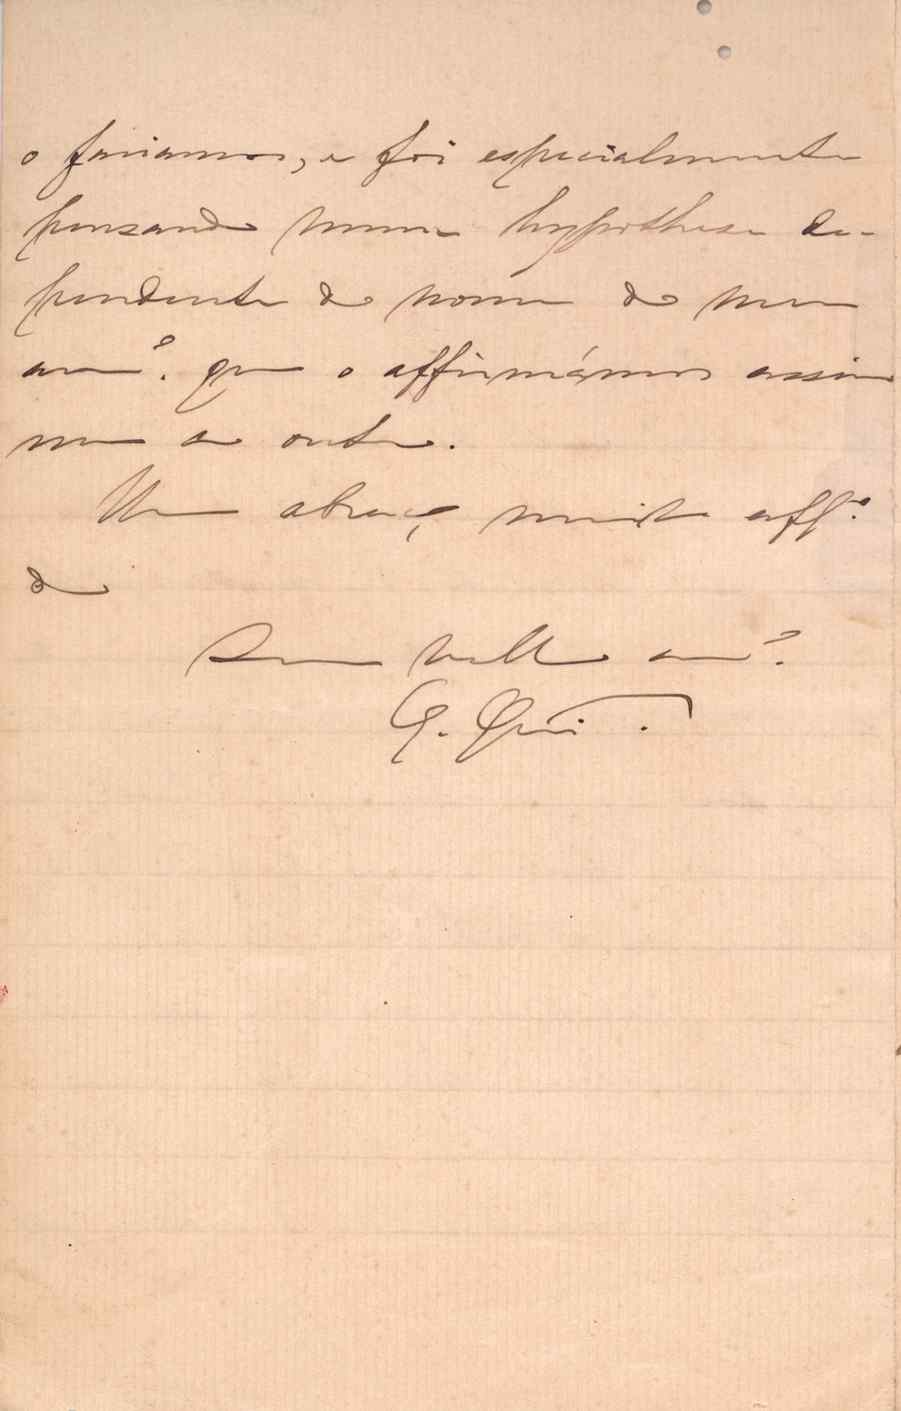 o fariamos, e foi especialmente
pensando numa hypothese de-
pendente do nome do meu
am.º que o affirmámos assim
um ao outro.
Um abraço muito aff.º
do
Seu velho am.º
G.